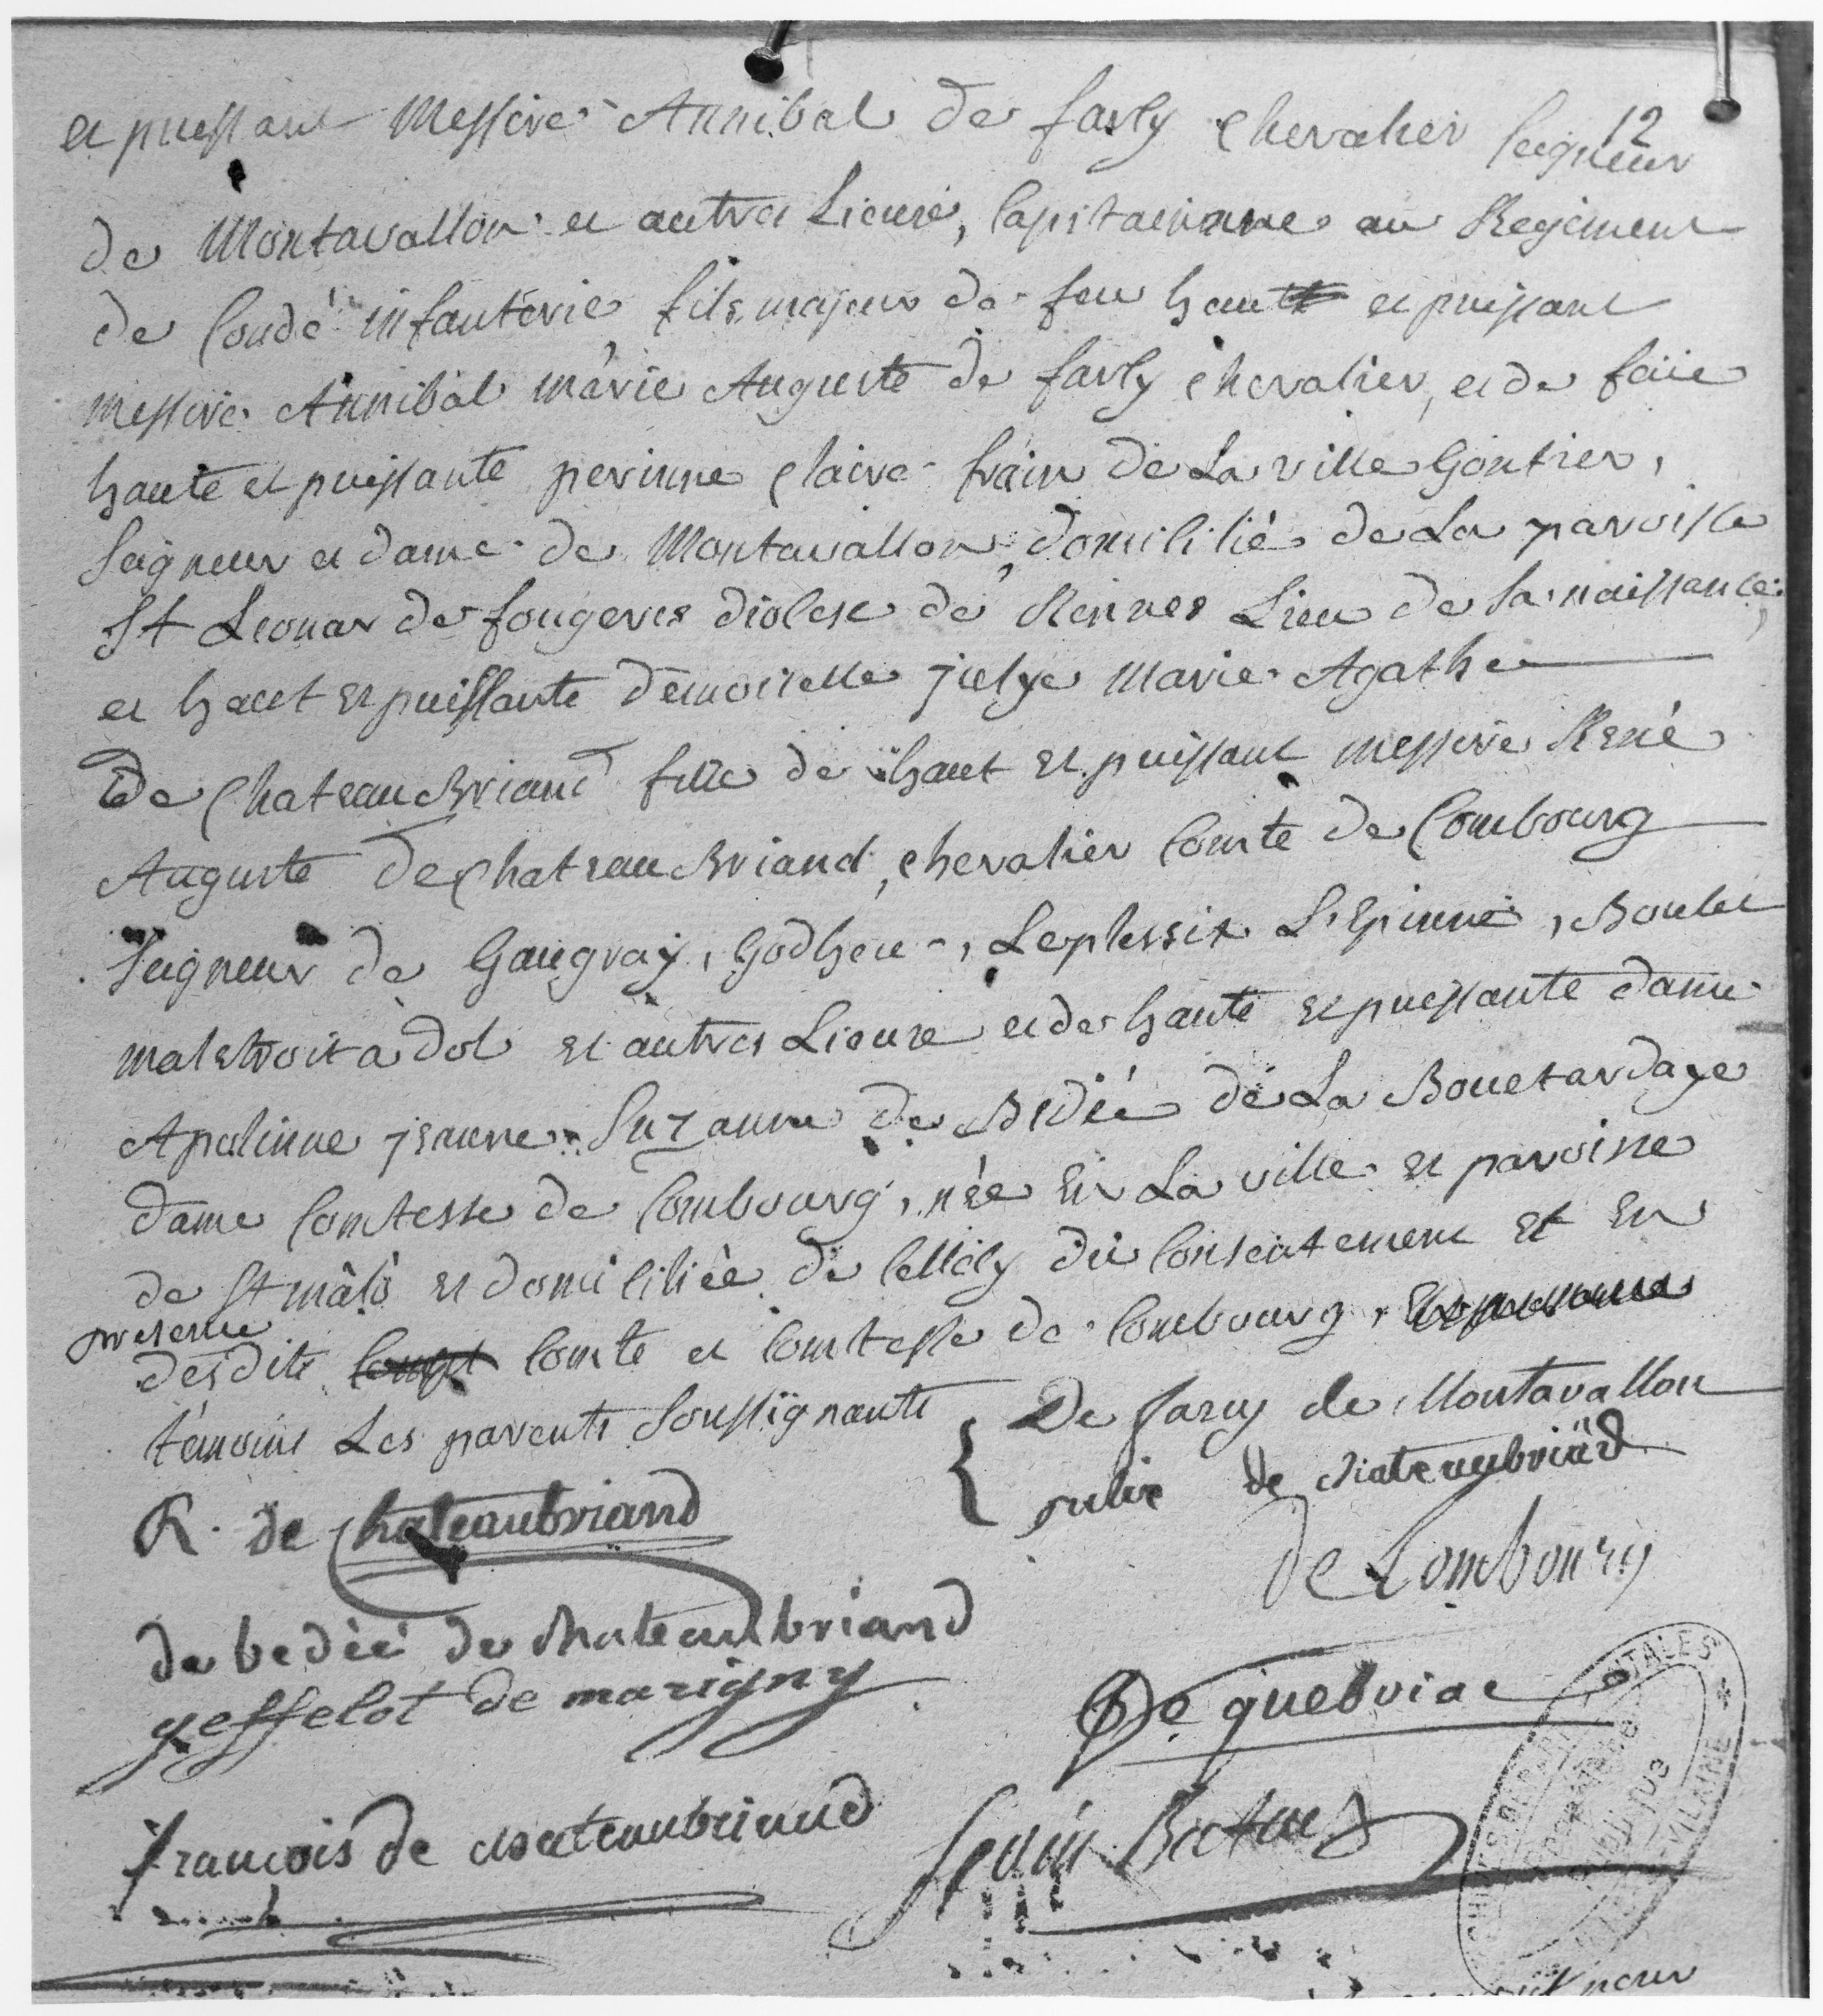 et puissant Messire Annibal de farcy chevalier Seigneur
12
de Montavallon et autres Lieux, Capitainne au Regiment
de Condé infanterie fils majeur de feu haut et puissant
messire Annibal marie Auguste de farcy chevalier, et de feüe
haute et puissante perinne claire frain de La ville Gontier,
Seigneur et dame de Montavallon, domicilié de La paroisse
St Leonar de fougeres diocese de Rennes Lieu de sa naissance,
et haut et puissante demoiselle julye Marie Agathe
De chateauBriand fille de haut et puissant messire René
Auguste de chateauBriand, chevalier Comte de Combourg
Seigneur de Gaugray, Godheu, Leplessix L'Epinne, Boulet
malestroit à dol et autres Lieux et de haute et puissante dame
Apolinne jeanne Suzanne de Bedée de La Bouetardaye
dame Comtesse de Combourg, née En La ville et paroisse
de St mâlo et domiciliée de Celleïcy du Consentement et En
presence
desdits Comte et Comtesse de Combourg,
témoins Les parents Soussignants { De Farcy de Montavallon
julie de chateaubriand
R. de chateaubriand
de Combourg
de bedée de chateaubriand
geffelot de marigny
De guebriac
françois de chateaubriand
Sevin
ARCHIVES DÉPARTEMENTALES
VILAINE
pour